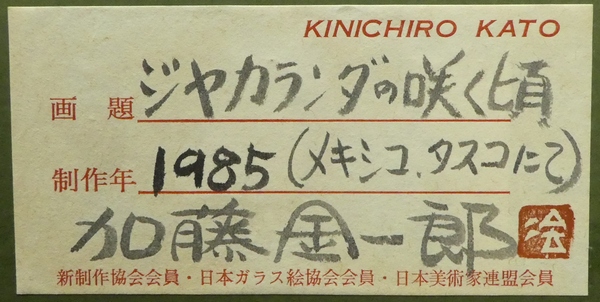 KINICHIRO KATO
画題 ジャカランダの咲く頃
制作年 1985(メキシコ、タスコにて)
加藤金一郎
新制作協会会員・日本ガラス絵協会会員・日本美術家連盟会員